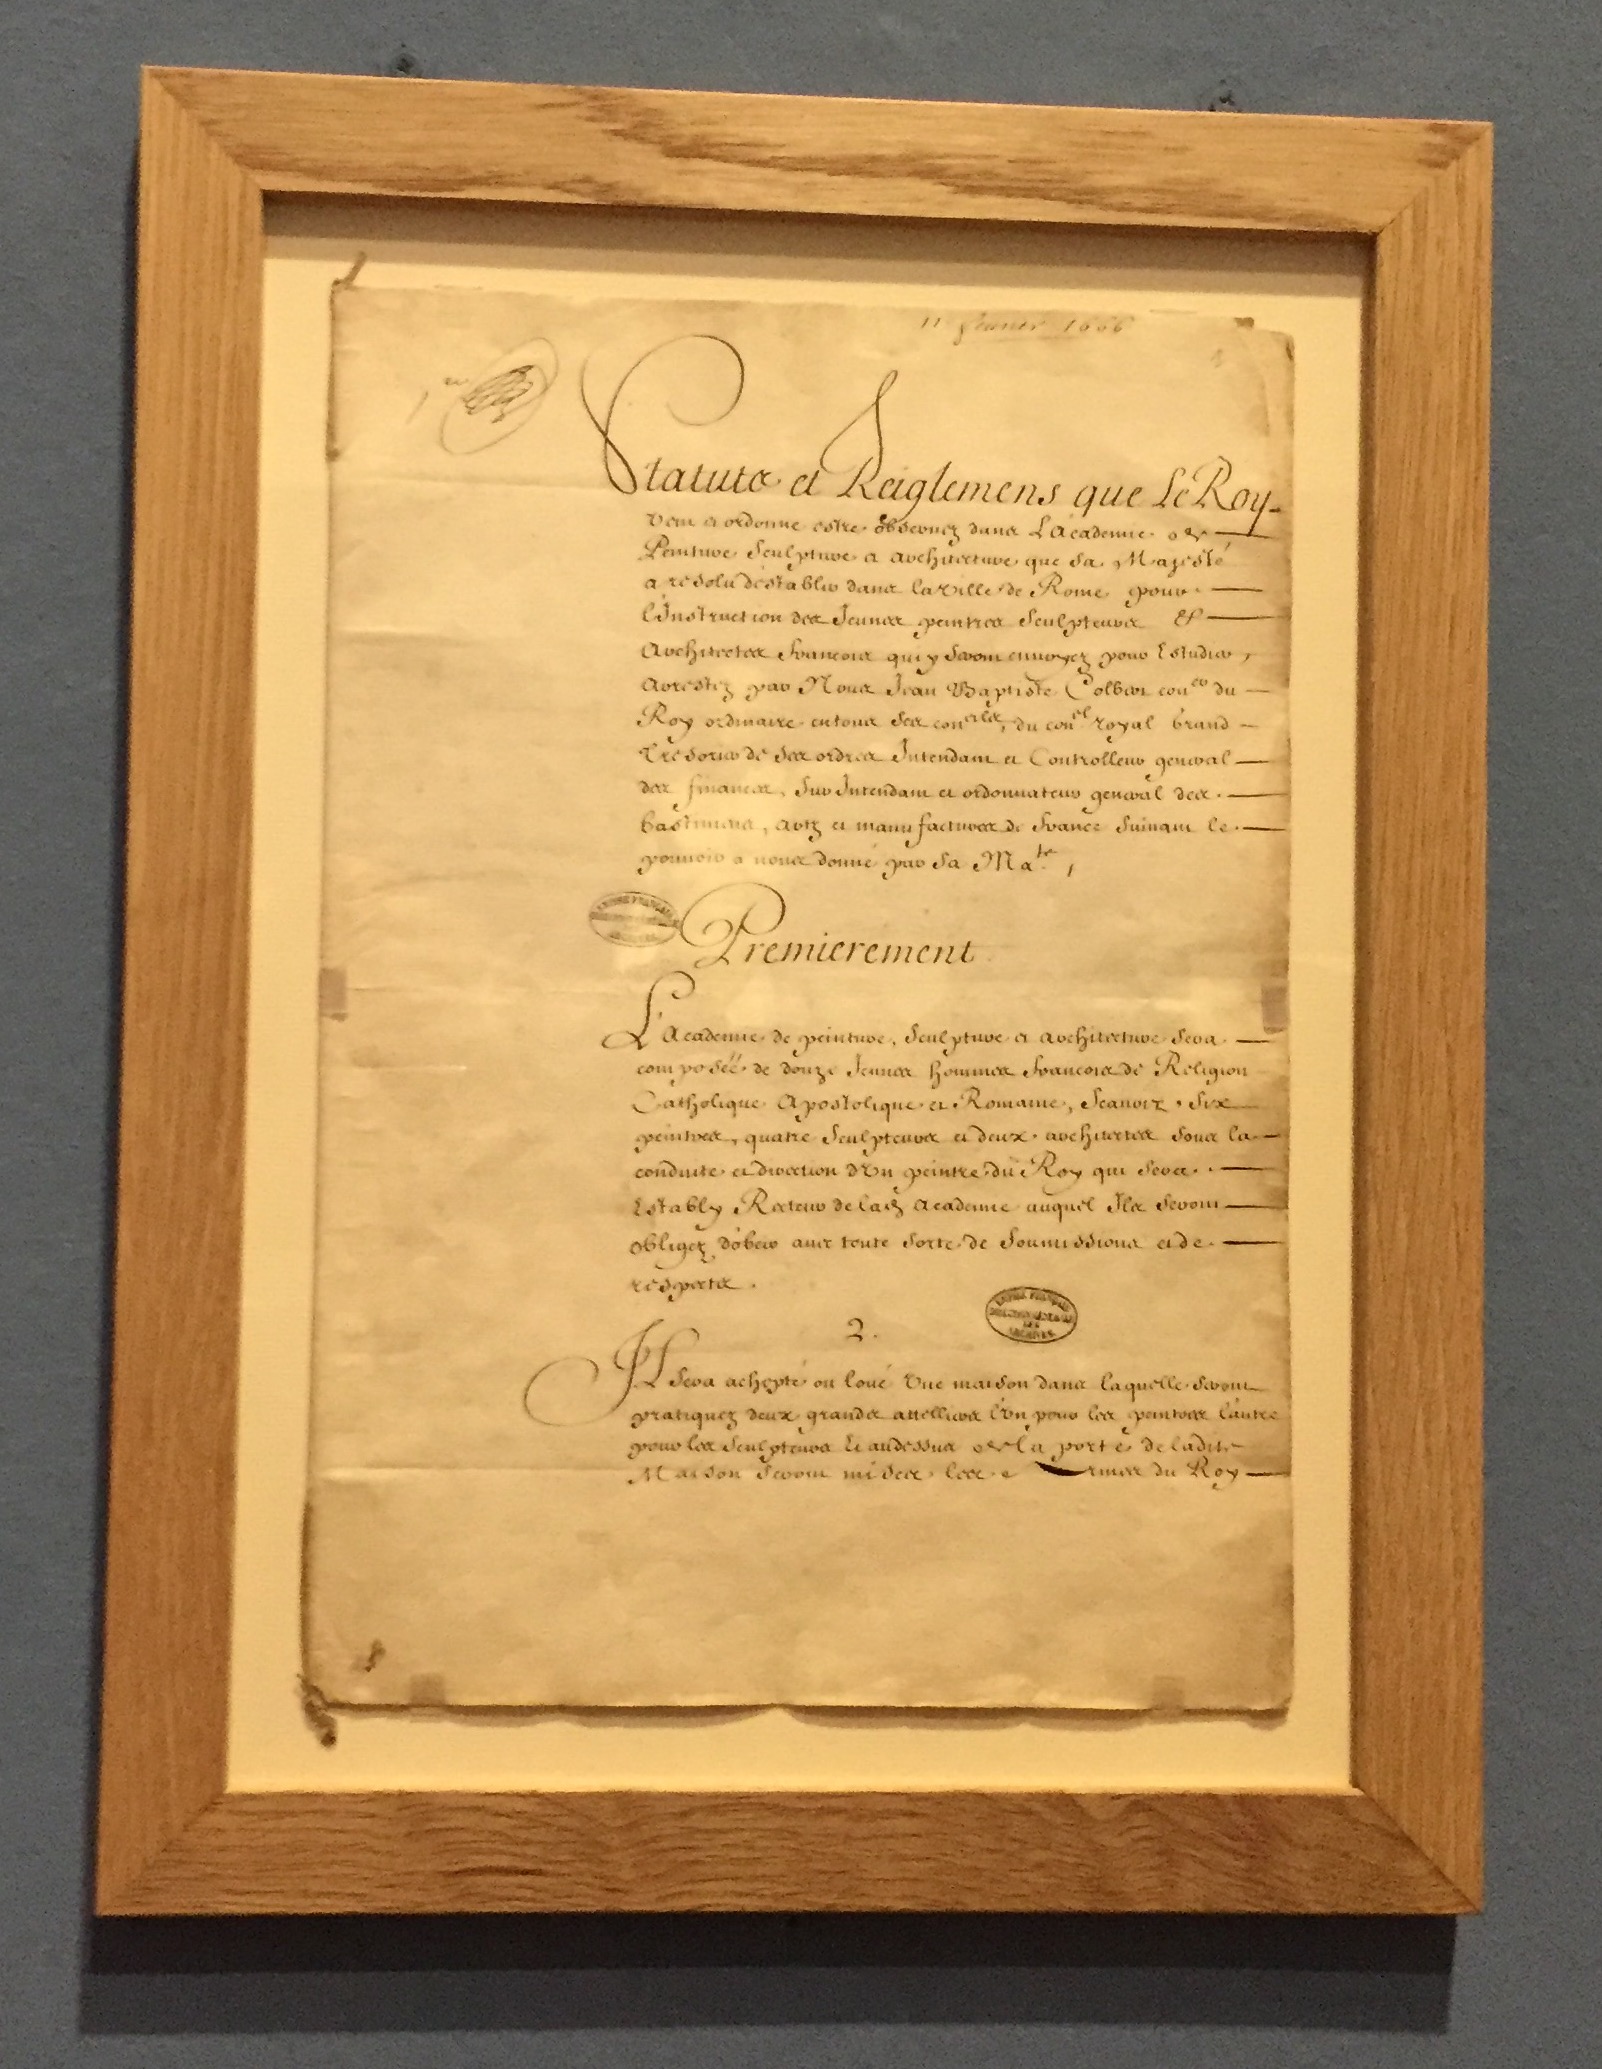 11 feurier 1666
1er
Statuts et Reiglemens que Le Roy
veut et ordonne estre obseruez dans L'Academie de
Peinture Sculpture et architecture que sa Majesté
a resolu d'establir dans la ville de Rome pour
l'Instruction des Jeunes peintres Sculpteurs &
Architectes francois qui y seront enuoyez pour Estudier,
arrestez par Nous Jean Baptiste Colbert coner du
Roy ordinaire en tous ses conseils, du conel royal Grand
Tresorier de ses ordres Intendant et Controlleur general
des finances, Sur Intendant et ordonnateur general des
bastimens, artz et manufactures de france suiuant le
pouuoir a nous donné par sa Mate,
EMPIRE FRANÇAIS
Premierement
L'Academie de peinture, Sculpture et architecture sera
composéé de douze Jeunes hommes francois de Religion
Catholique Apostolique et Romaine, Scauoir six
peintres, quatre Sculpteurs et deux architectes sous la
conduite et direction d'Vn peintre du Roy qui sera
Estably Recteur de lad Academie auquel Ils seront
obligez d'obeir auec toute sorte de soumissions et de
respects.
EMPIRE FRANÇAIS
DES
ARCHIVES
2.
Il sera achepté ou loué Vne maison dans laquelle seront
pratiquez deux grands attelliers l'Vn pour les peintres l'autre
pour les Sculpteurs Et au dessus de la porte de ladite
Maison seront mises les Armes du Roy